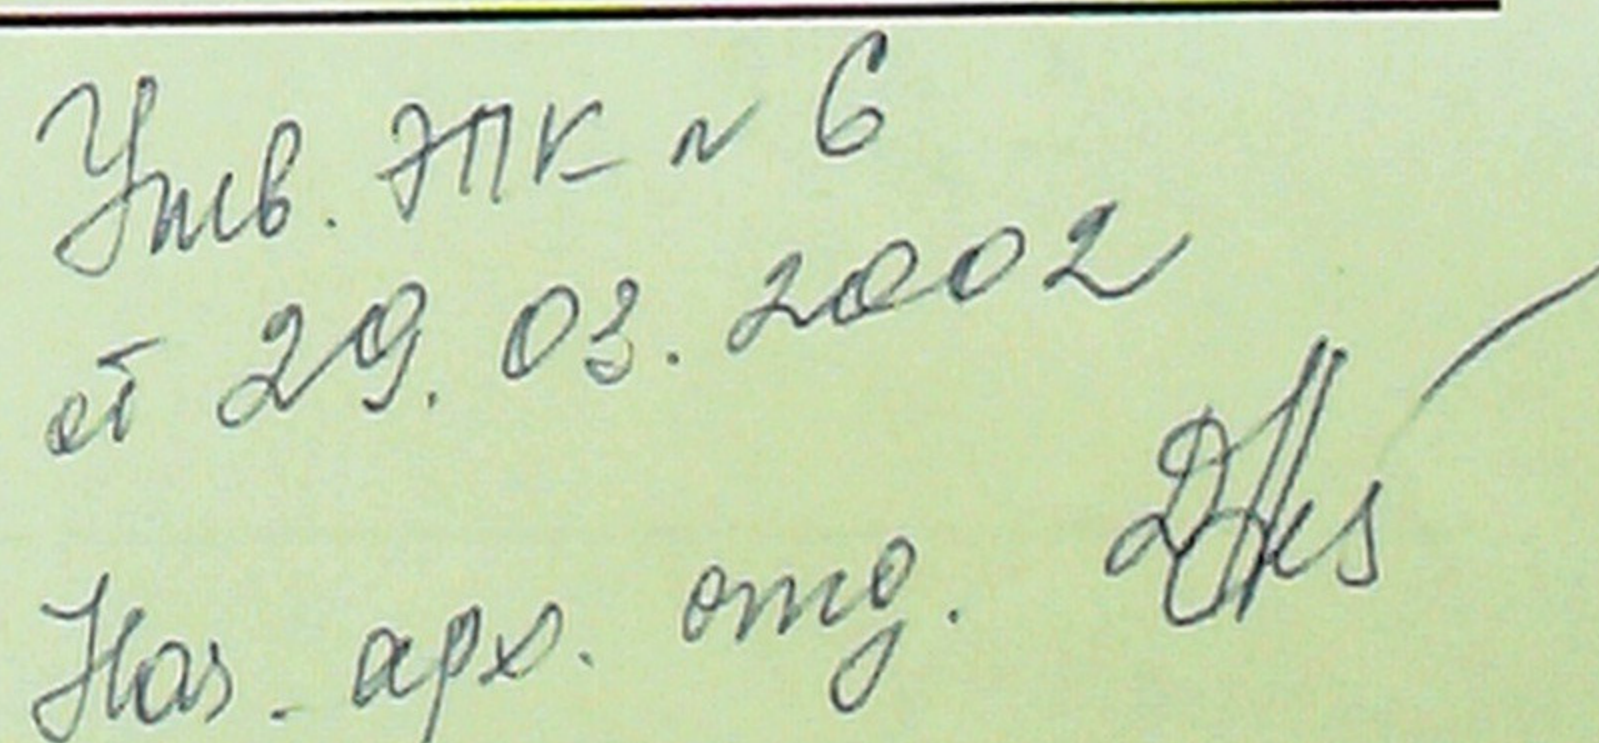 Утв. ЭПК № 6
от 29.03.2002
Нач. арх. отд.